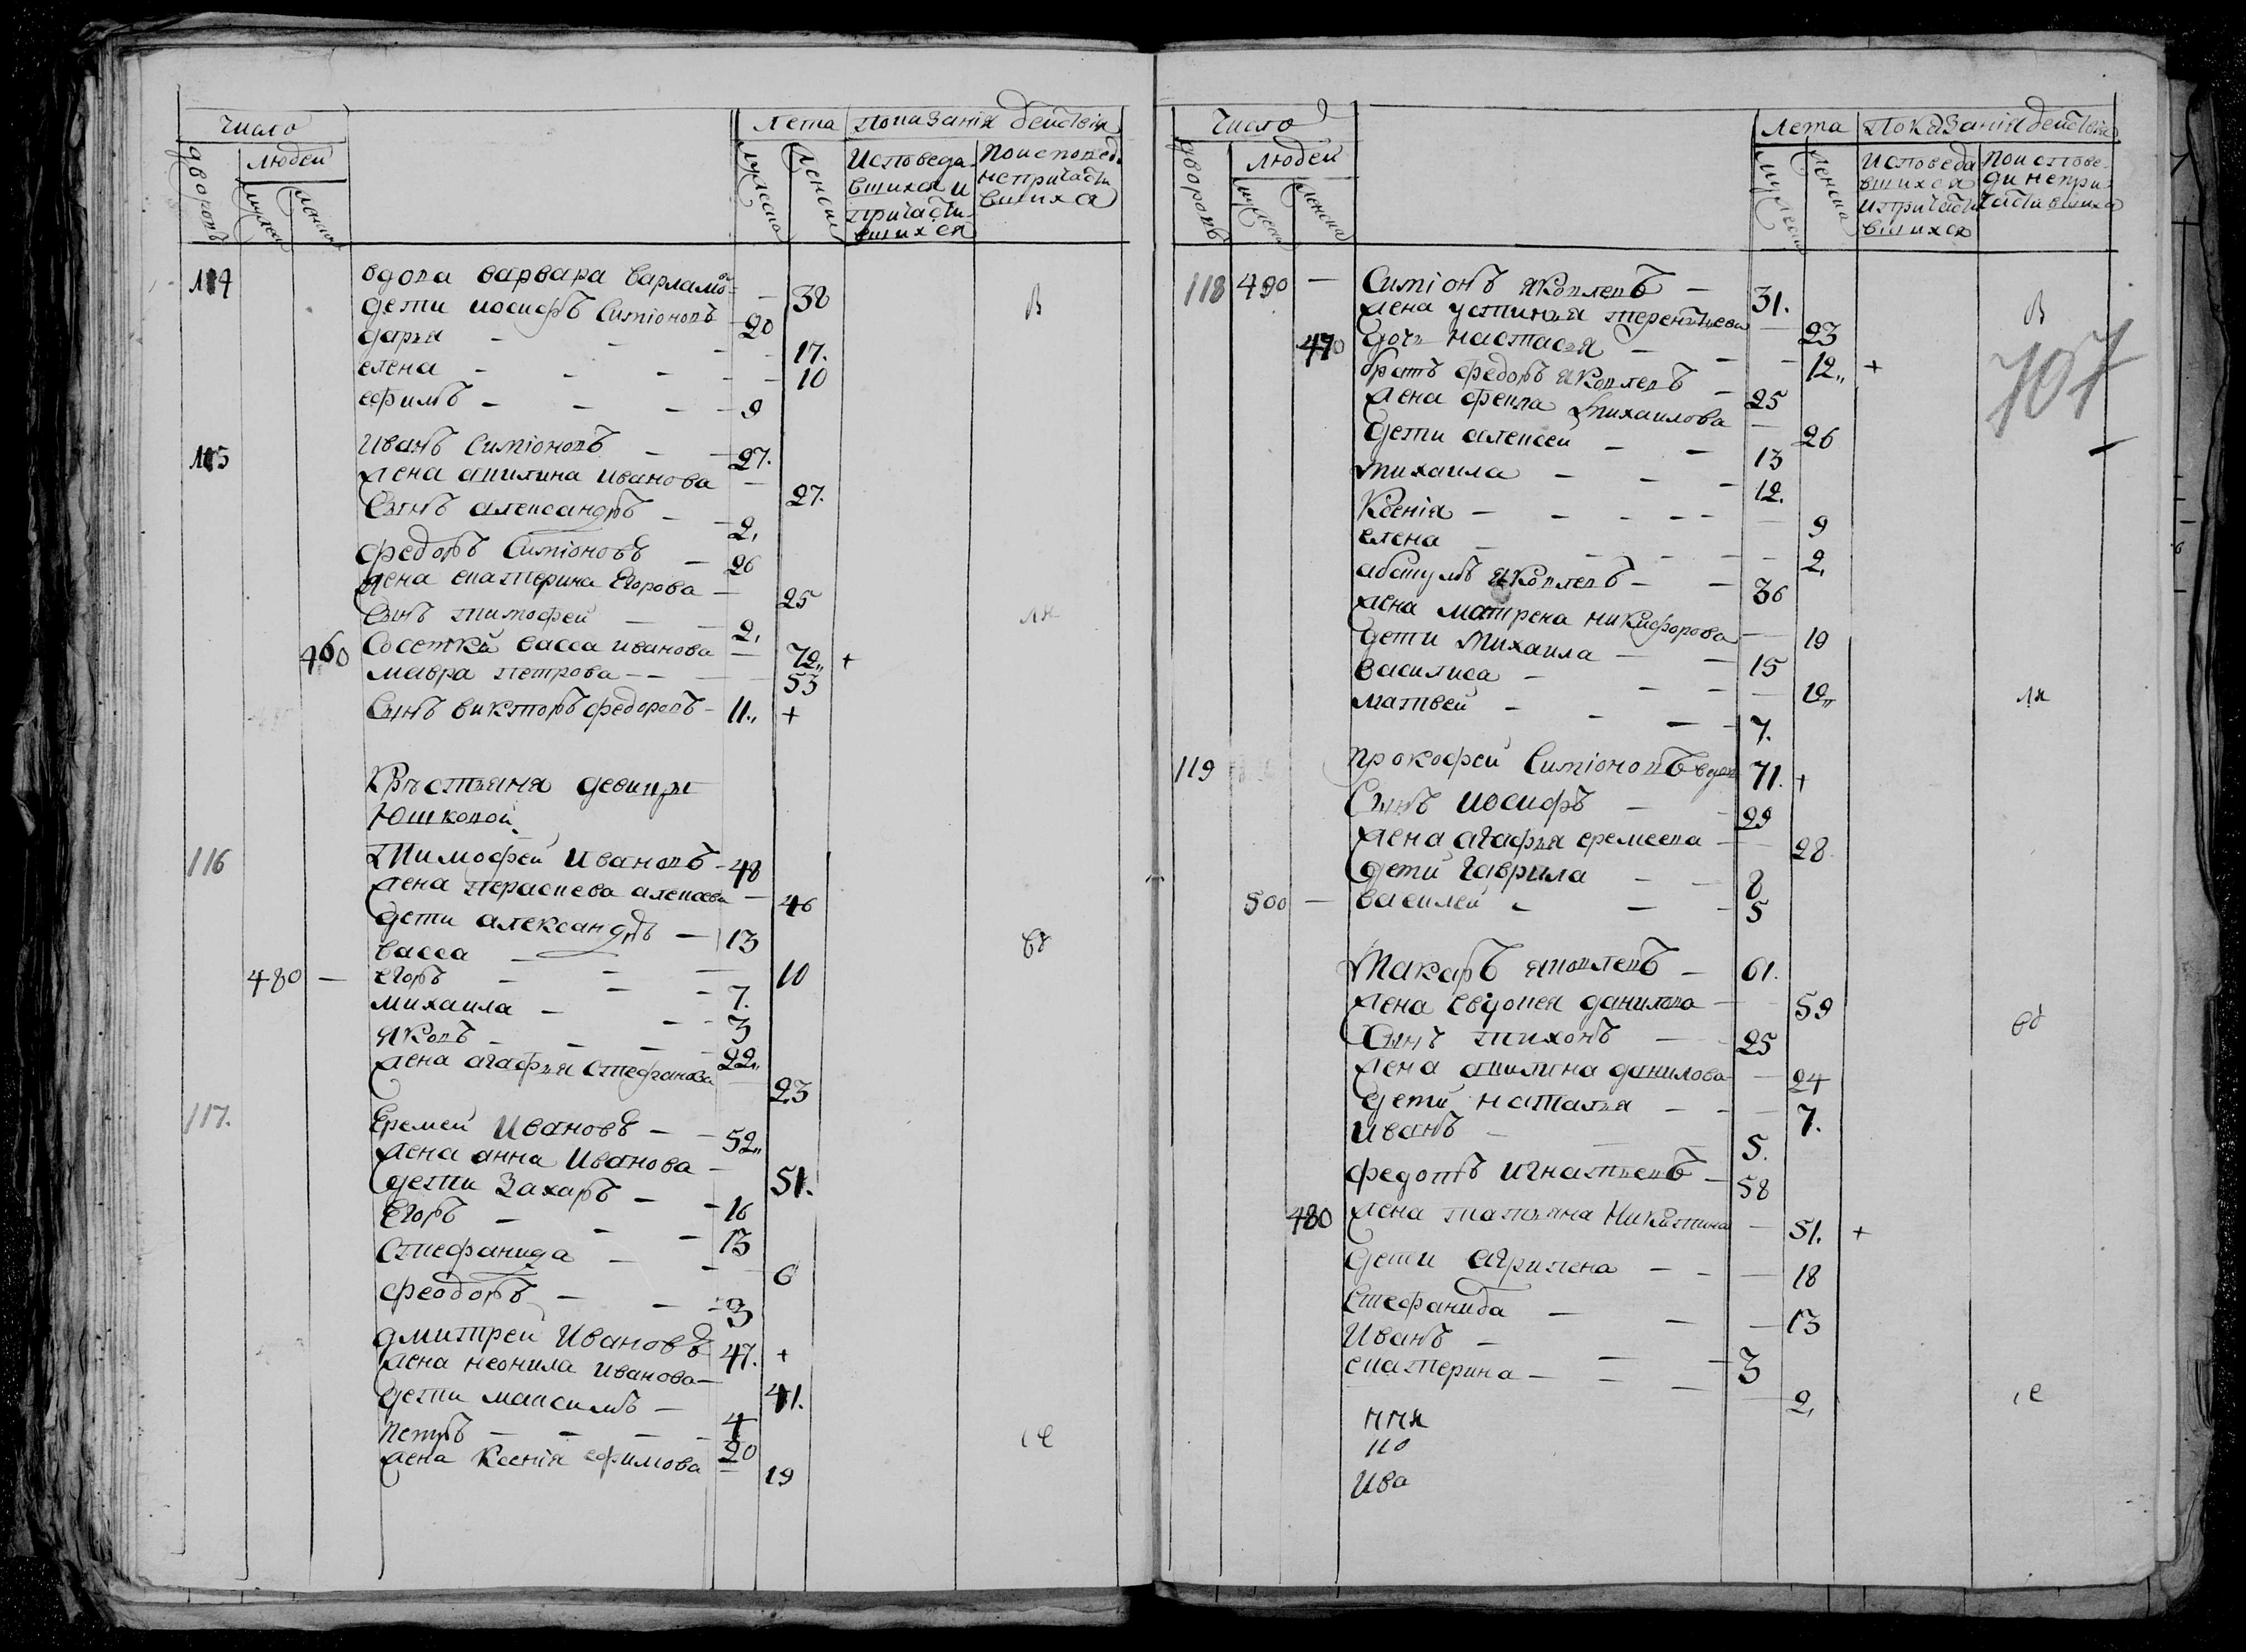 Число
Лета Показания действія
дворовъ
людей
мужеска
женска
мужеска
женски
Исповеда-
вшихся и
причасти-
вшихся
По исповед.
не причасти
вшихся
114 вдова варвара варламо — 38
дети иосифъ Симіоновъ 20
дарья — 17.
елена — 10
ефимъ — 9
В
115 Иванъ Симіоновъ — 27.
жена акилина иванова — 27.
Сынъ александръ — 2,
федоръ Симіоновъ — 26
жена екатерина Егорова — 25
Сынъ тимофей — 2,
ля
460 Соседка васса иванова — 72,, +
мавра петрова — 53
Сынъ викторъ федоровъ — 11,, +
Крестьяня девицы
Юшковой
116 Тимофей Ивановъ — 48
жена параскева алексева — 46
дети александръ — 13
васса — 10
480 — егоръ — 7.
михаила — 3
яковъ — 22,,
жена агафья Стефанова — 23
117. Еремей Ивановъ — 52,,
жена анна Иванова — 51.
дети Захаръ — 16
Егоръ — 13
Стефанида — 6
феодоръ — 3
дмитрей Ивановъ 47. +
жена неонила иванова — 41.
дети максимъ — 4
Петръ — 20
жена Ксенія ефимова — 19
се
Число
Лета Показанія действія
дворовъ
людей
мужеска
женска
мужеска
женска
Исповеда
вшихся
и причасти
вшихся
По испове-
ди непри-
частившихся
118 490 — Симіонъ яковлевъ — 31.
жена устинья терентьева — 23
470 дочь настасья — 12,, +
В
707
братъ федоръ яковлевъ — 25
жена фекла Михаилова — 26
дети алексей — 13
михаила — 12.
Ксенія — 9
елена — 2,
яковлевъ — 36
жена матрена никифорова — 19
дети Михаила — 15
василиса — 12,,
ля
матвей — 7.
119 прокофей Симіоновъ вдов 71. +
Сынъ иосифъ — 29
жена агафья еремеева — 28
дети гаврила — 8
500 — василей — 5
Макаръ яковлевъ — 61.
жена евдокея данилова — 59
Сынъ тихонъ — 25
жена акилина данилова — 24
дети наталья — 7.
Иванъ — 5.
федотъ игнатьевъ — 58
480 жена татьяна Никитина — 51. +
дети агрипена — 18
Стефанида — 13
Иванъ — 3
екатерина — 2,
се
ння
но
Ива